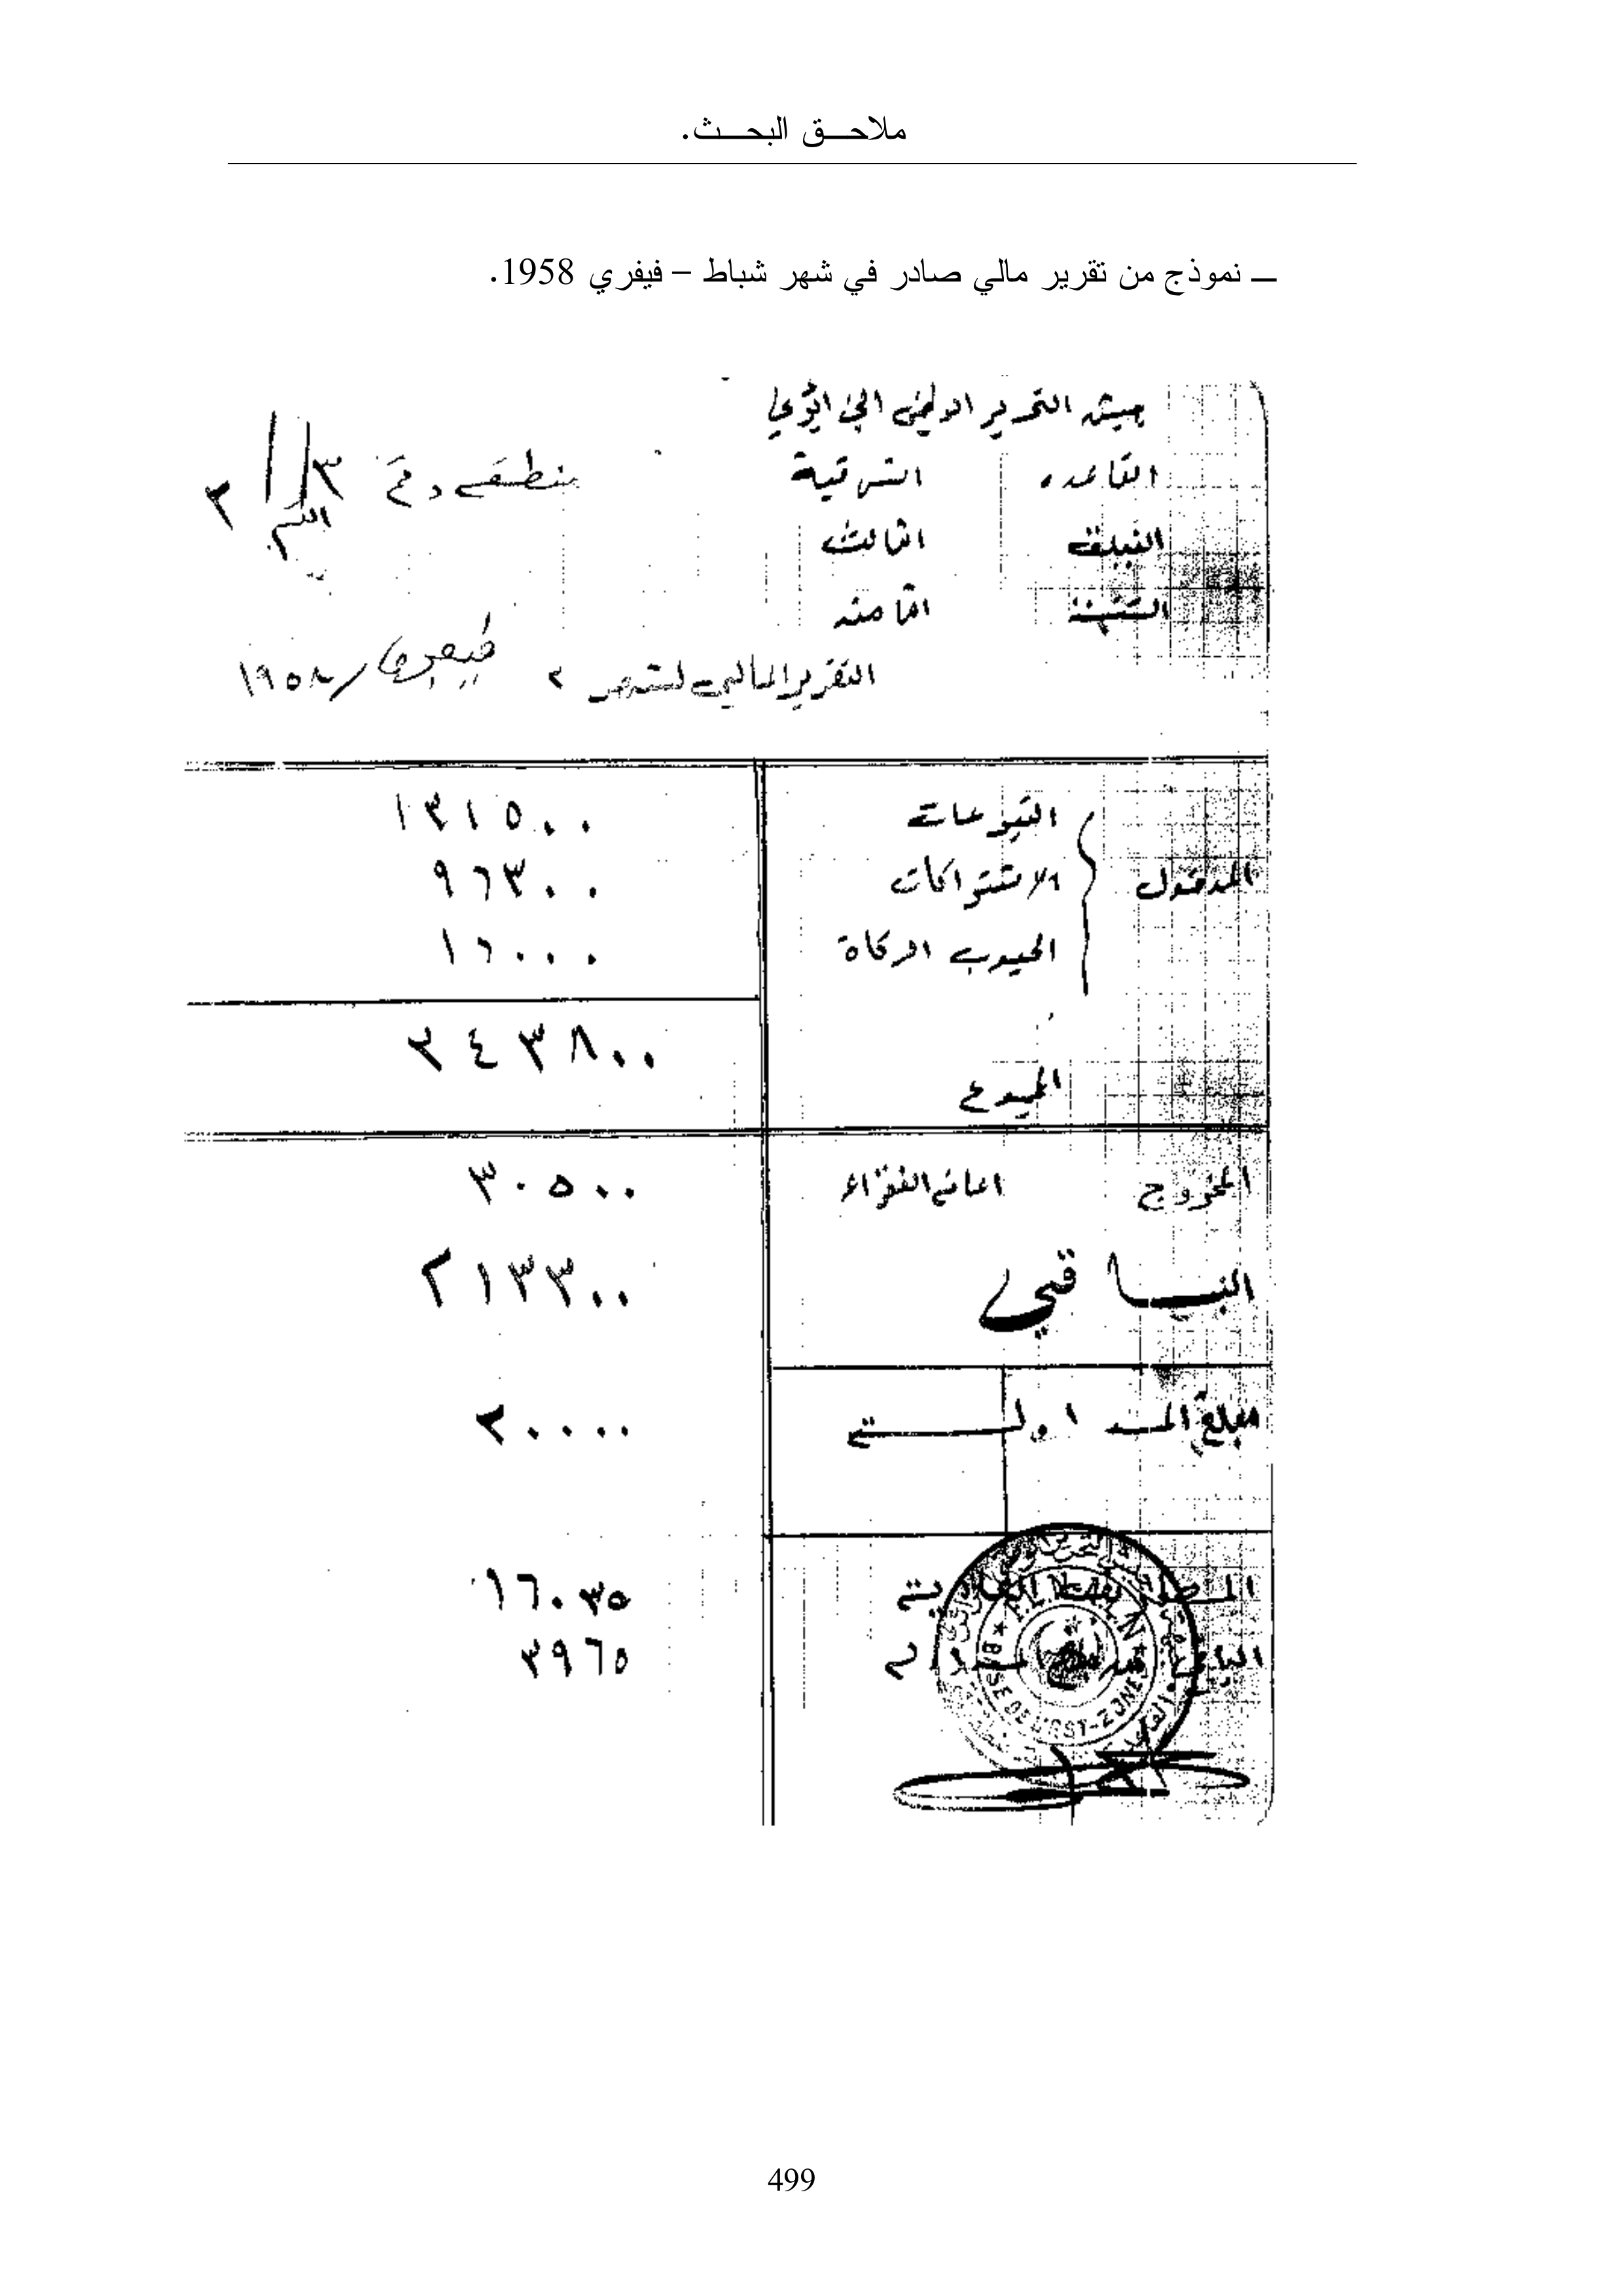 ملاحـــق البحـــث.
ــ نموذج من تقرير مالي صادر في شهر شباط – فيفري 1958.
جيش التحرير الوطني الجزائري
القاعدة الشرقية منطقة ٣
الفيلق الثالث
الثامنة
التقرير المالي لشهر ٢ فيفري ١٩٥٨
المدخول
التبرعات ١٣١٥٠٠
الاشتراكات ٩٦٣٠٠
الحبوب الزكاة ١٦٠٠٠
المجموع ٢٤٣٨٠٠
الخروج اعانة الفقراء ٣٠٥٠٠
الباقي ٢١٣٣٠٠
مبلغ المداولة ٢٠٠٠٠
١٦٠٣٥
الباقي ٣٩٦٥
BASE DE L'EST-ZONE
499